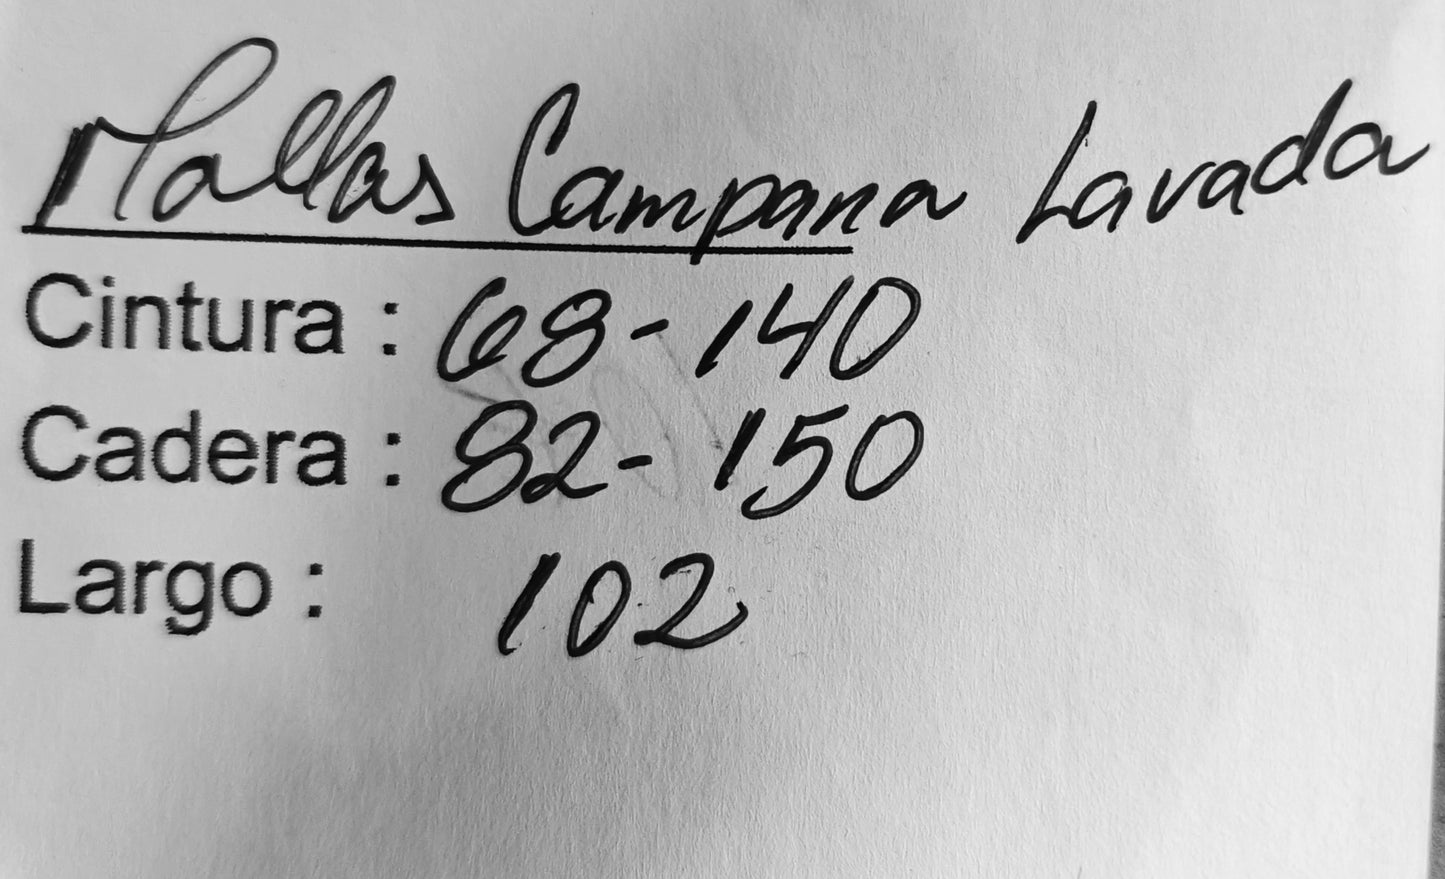 Mallas Campana Lavada
Cintura : 68-140
Cadera : 82-150
Largo : 102